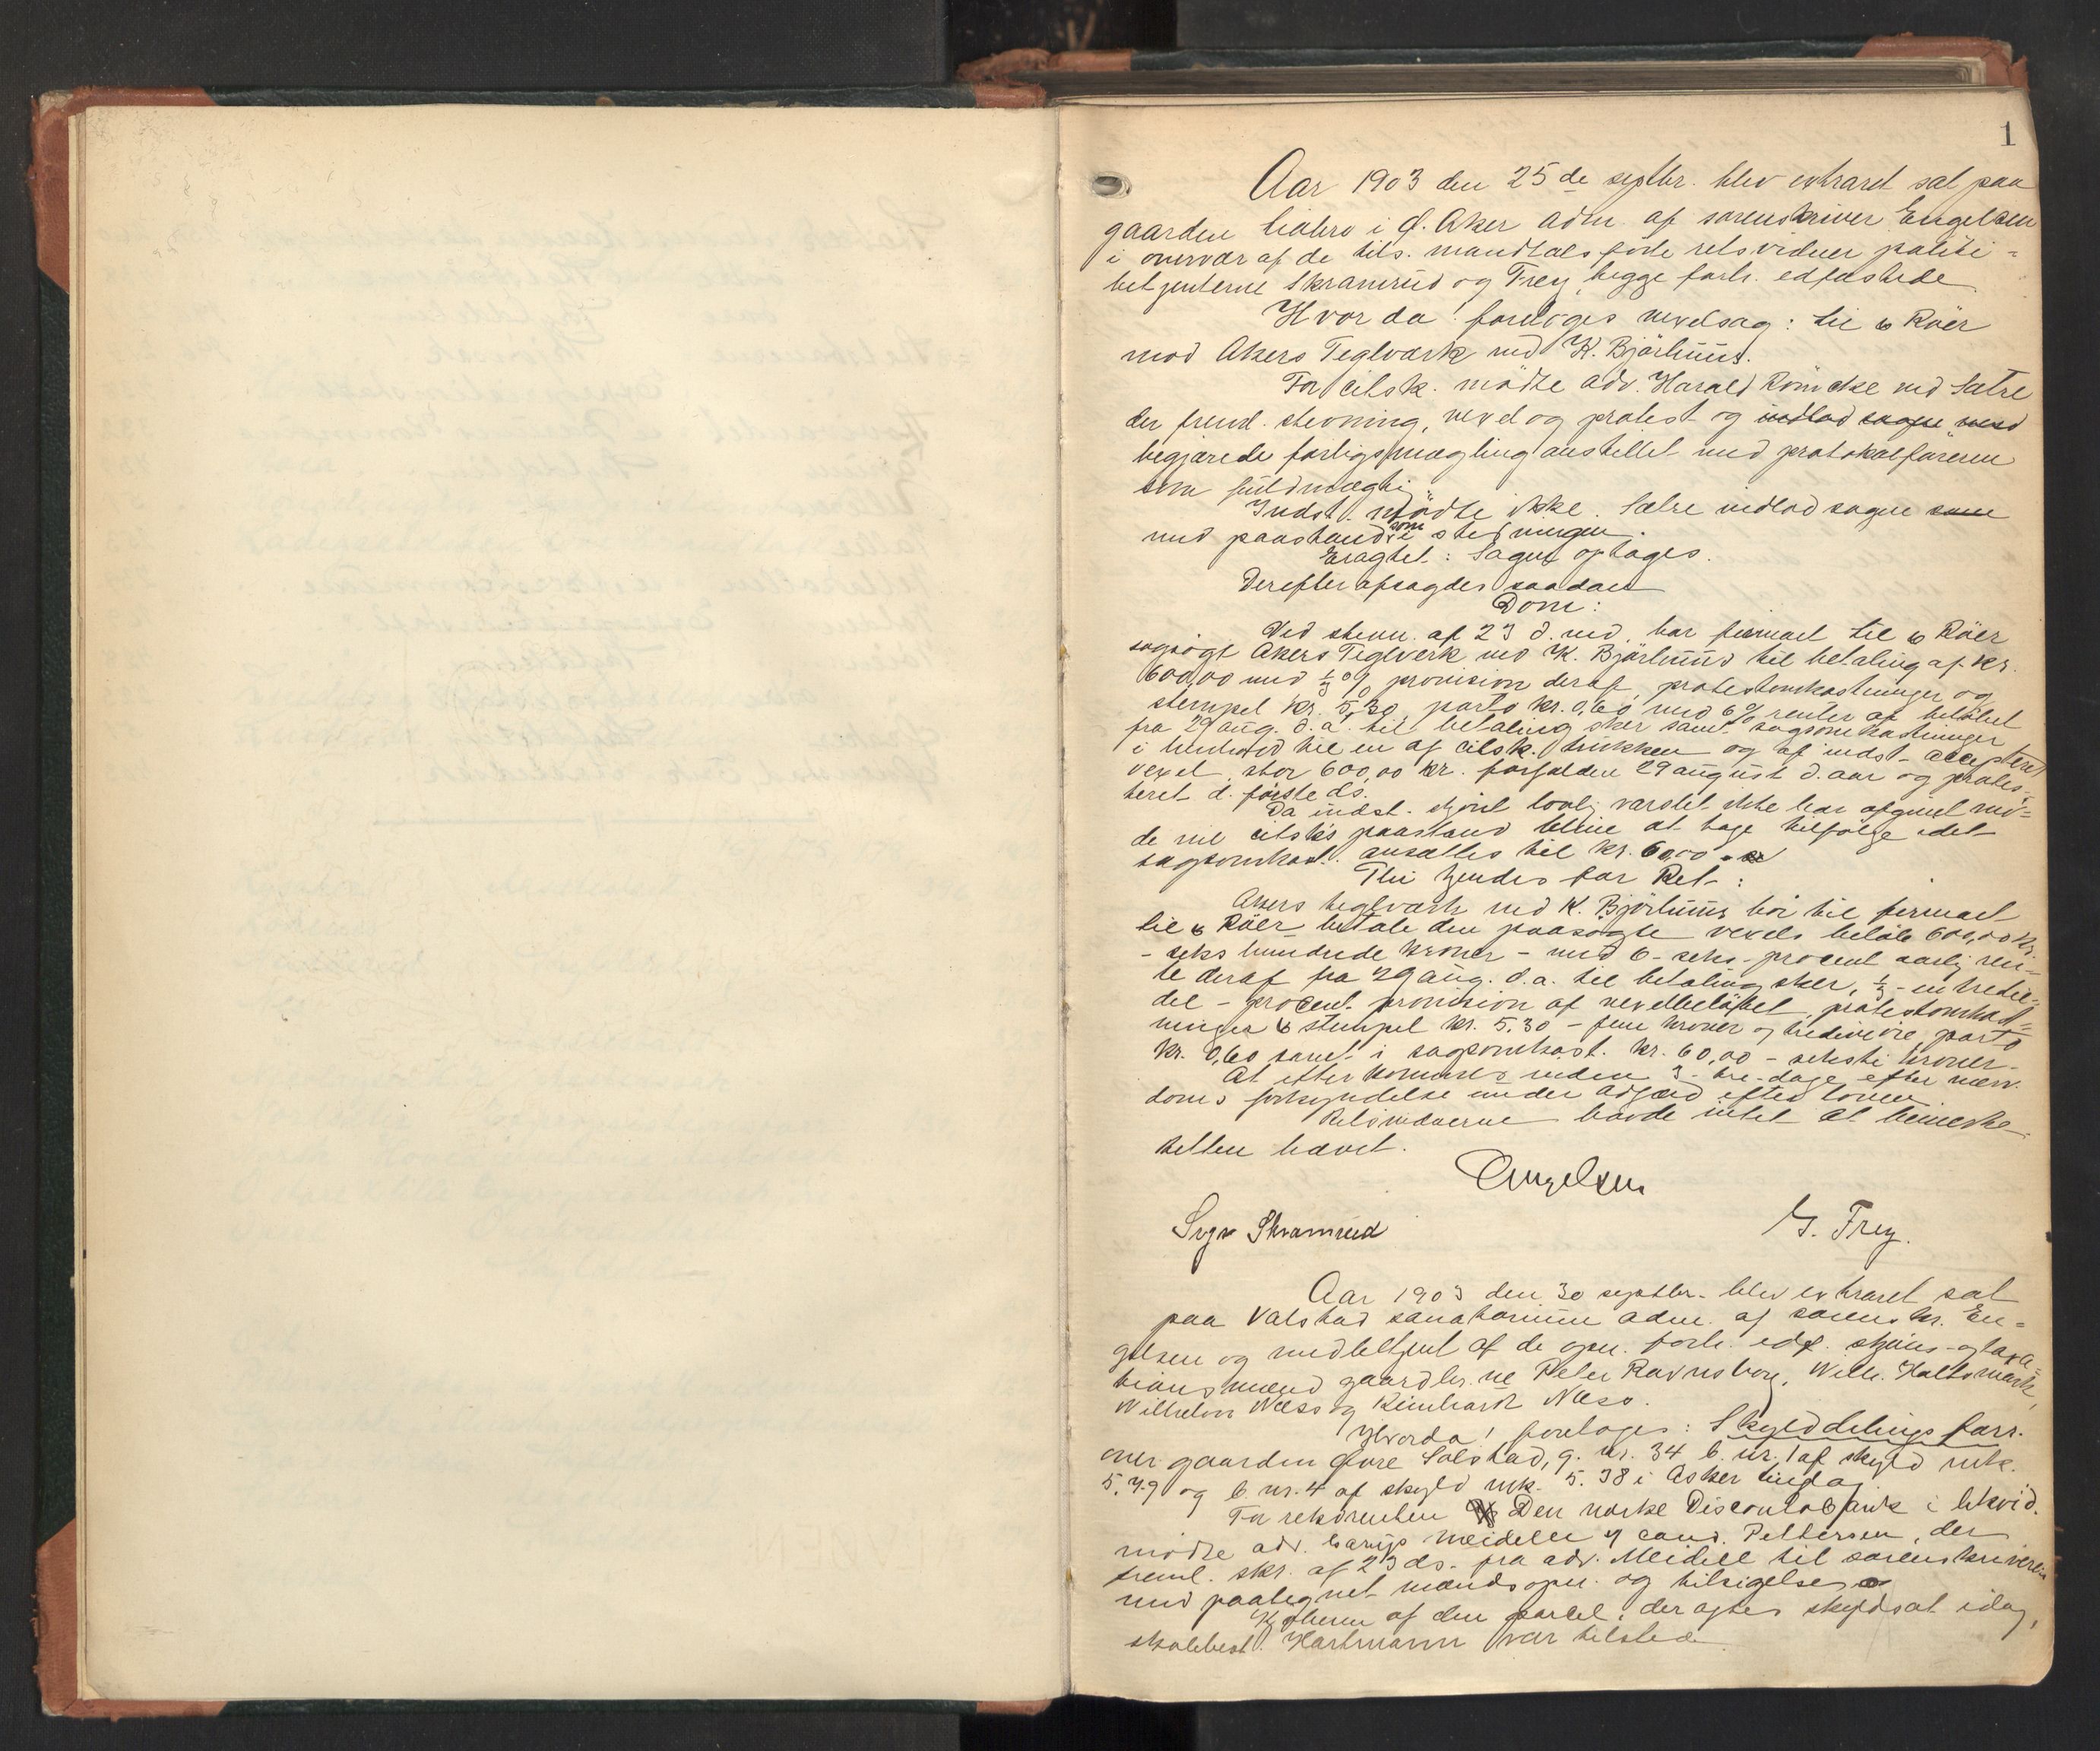 1
Aar 1903 den 25de septbr. blev extraret sat paa
gaarden i Ø. Aker adm. af sorenskriver Engelsen
i overvær af de tils. mandtalsførte retsvidner politi=
betjenterne Skramrud og Frey, begge forh. edfæstede
Hvor da! foretoges vexelsag: Lie & Röer
mod Akers Teglværk ved K. Bjørhuus.
For citsk. mødte adv. Harald Römcke ved Sætre
der freml. stevning, vexel og protest og indlod sagen med
begjærede forligsmægling anstillet med protokolføreren
som fuldmægtig.
Indst. mødte ikke. Sætre indlod sagen som
med paastand som i stevningen.
Eragtet: Sagen optages.
Derefter afsagdes saadan
Dom:
Ved stevn. af 23 d. md. har firmaet Lie & Röer
sagsøgt Akers Teglverk ved K. Bjørhuus til betaling af kr.
600,00 med 1/3 % provision deraf, protestomkostninger og
stempel kr. 5,30, porto kr. 0,60 med 6% renter af beløbet
fra 29 aug. d.a. til betaling sker samt sagsomkostninger
i henhold til en af citsk. trukken og af indst. acceptered
vexel, stor 600,00 kr. forfalden 29 august d. aar og protes=
teret d. første ds.
Da indst. skjønt lovlig varslet ikke har afgivet mø=
de vil citsk's paastand blive at tage tilfølge idet
sagsomkost. ansættes til kr. 60,00.
Thi kjendes for Ret:
Akers teglværk ved K. Bjørhuus bør til firmaet
Lie & Röer betale den paasøgte vexels beløb 600,00 kr.
- seks hundrede kroner - med 6 - seks - procent aarlig ren=
te deraf fra 29 aug. d.a. til betaling sker, 1/3 - en tredie=
del - procent provision af vexelbeløbet, protestomkost=
ninger & stempel kr. 5.30 - fem kroner og tredive øre, porto
kr. 0,60 samt i sagsomkost. kr. 60,00 - seksti kroner -
At efterkommes inden 3 - tre - dage efter nærv.
doms forkyndelse under adfærd efter loven
Retsvidnerne havde intet at bemerke
Retten hævet.
Engelsen
Sigv Skramrud
G. Frey.
Aar 1903 den 30 septbr. blev extraret sat
paa Valstad sanatorium adm. af sorenskr. En=
gelsen og medbetjent af de opn. forh. edf. skjøns- og taxa=
tionsmænd gaardbr.ne Peter Ravnsborg, Wilh. Holtsmark,
Wilhelm Næss og Reinhardt Næss.
Hvorda! foretoges: Skylddelingsforr.
over gaarden Øvre Solstad, g. nr. 34 b. nr. 1 af skyld mk.
5.79 og b. nr. 4 af skyld mk. 5.38 i Asker tinglag
For rekvirenten Den norske Discontobank i likvid.
mødte adv. Meidell v/ cand. Pettersen, der
freml. skr. af 23 ds. fra adv. Meidell til sorenskriveren
med paategnet mændsopn. og tilsigelse
Kjøberen af den parcel, der agtes skyldsat idag,
skolebest. Hartmann var tilstede